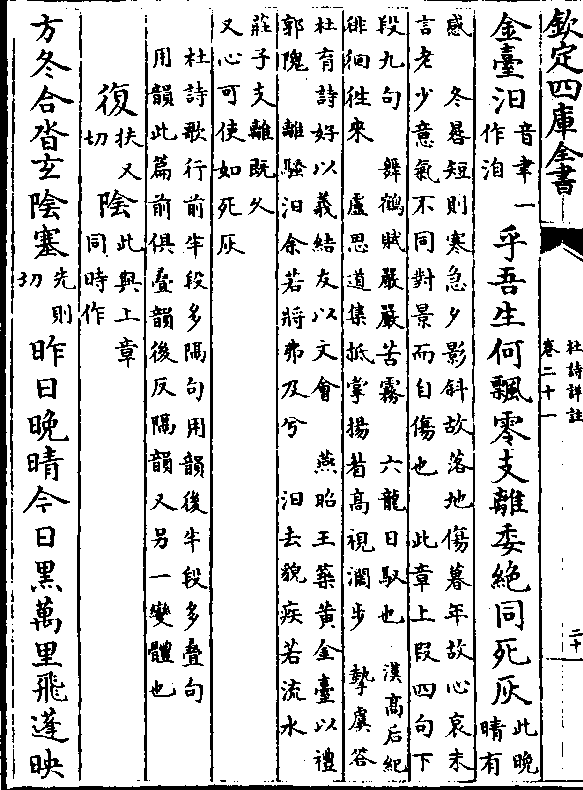 欽定四庫全書
杜詩詳註
卷二十一
二十
金臺汨音聿一作洎乎吾生何飄零支離委絕同死灰此晚晴有
感　冬晷短則寒急夕影斜故落地傷暮年故心哀末
言老少意氣不同對景而自傷也　此章上段四句下
段九句　舞鶴賦嚴嚴苦霧　六龍日馭也　漢高后紀
徘徊徃來　盧思道集抵掌揚眉高視濶步　摯虞答
杜有詩好以義結友以文會　燕昭王築黄金臺以禮
郭隗　離騷汨余若將弗及兮　汨去貌疾若流水
莊子支離既久
又心可使如死灰
杜詩歌行前半段多隔句用韻後半段多疊句
用韻此篇前俱疊韻後反隔韻又另一變體也
復扶又切陰此與上章同時作
方冬合沓玄陰塞先則切昨日晚晴今日黒萬里飛蓬映